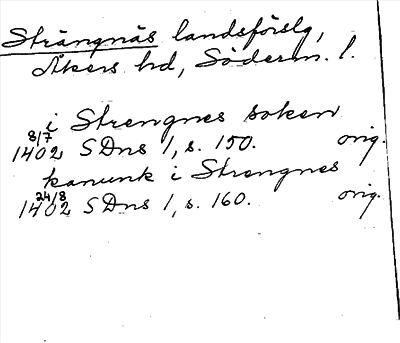 Strängnäs landsförslg,
Åkers hd, Söderm. l.
i Strengnes soken
1402 8/7 SDns 1, s. 150. orig.
kanunk i Strengnes
1402 24/8 SDns 1, s. 160. orig.